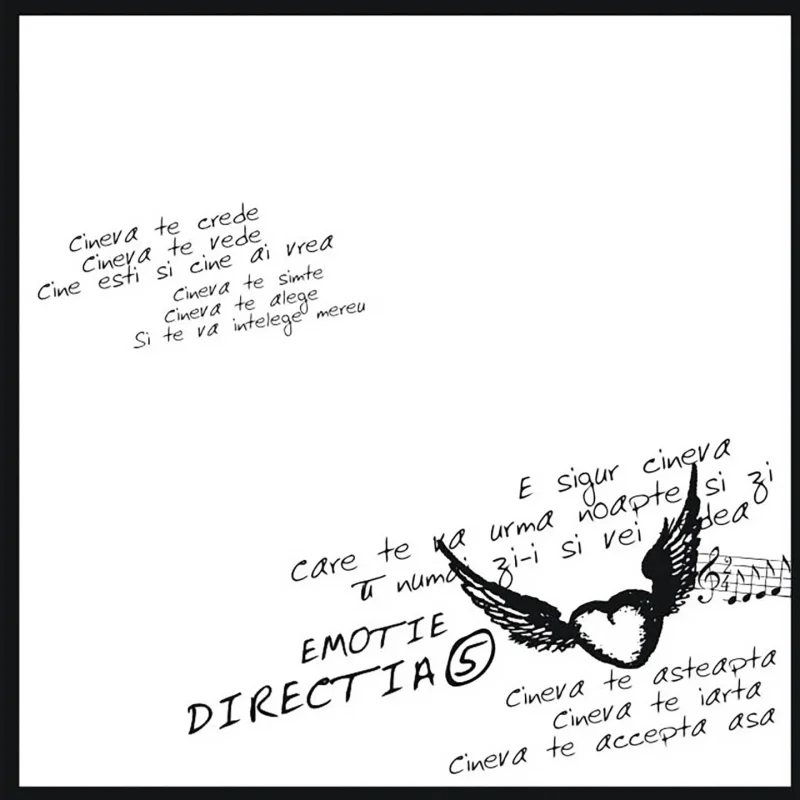 Cineva te crede
Cineva te vede
Cine esti si cine ai vrea
Cineva te simte
Cineva te alege
Si te va intelege mereu
E sigur cineva
care te va urma noapte si zi
Tu numai zi-i si vei vedea
EMOTIE
DIRECTIA 5
Cineva te asteapta
Cineva te iarta
Cineva te accepta asa